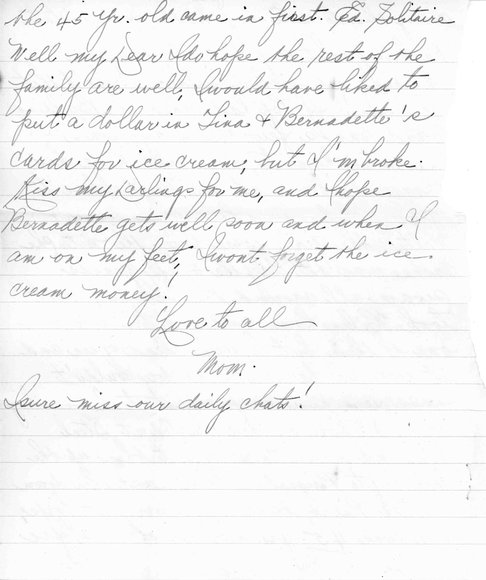 the 45 yr. old came in first. Ed. Solitaire
Well my Dear I do hope the rest of the
family are well, I would have liked to
put a dollar in Tina & Bernadette's
cards for ice cream, but I'm broke.
Kiss my Darlings for me, and I hope
Bernadette gets well soon and when I
am on my feet, I wont forget the ice
cream money!
Love to all
Mom.
I sure miss our daily chats!